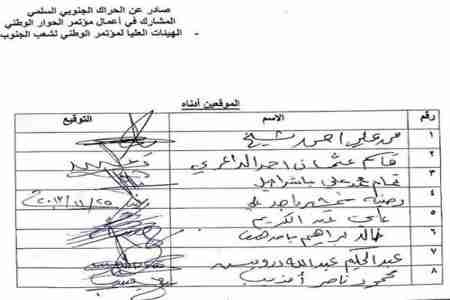 صادر عن الحراك الجنوبي السلمي
المشارك في أعمال مؤتمر الحوار الوطني
- الهيئات العليا لمؤتمر الوطني لشعب الجنوب
الموقعين أدناه
رقم الاسم التوقيع
١ محمد علي احمد شيخ
٢ قاسم عثمان احمد الداعري
٣ تمام محمد علي باشراحيل
٤ رضية شمشير واجد علي ٢٠١٣/١١/٢٥
٥ علي عبد الكريم
٦ خالد ابراهيم بامدهف
٧ عبدالحكيم عبدالله درويش
٨ محمود ناصر